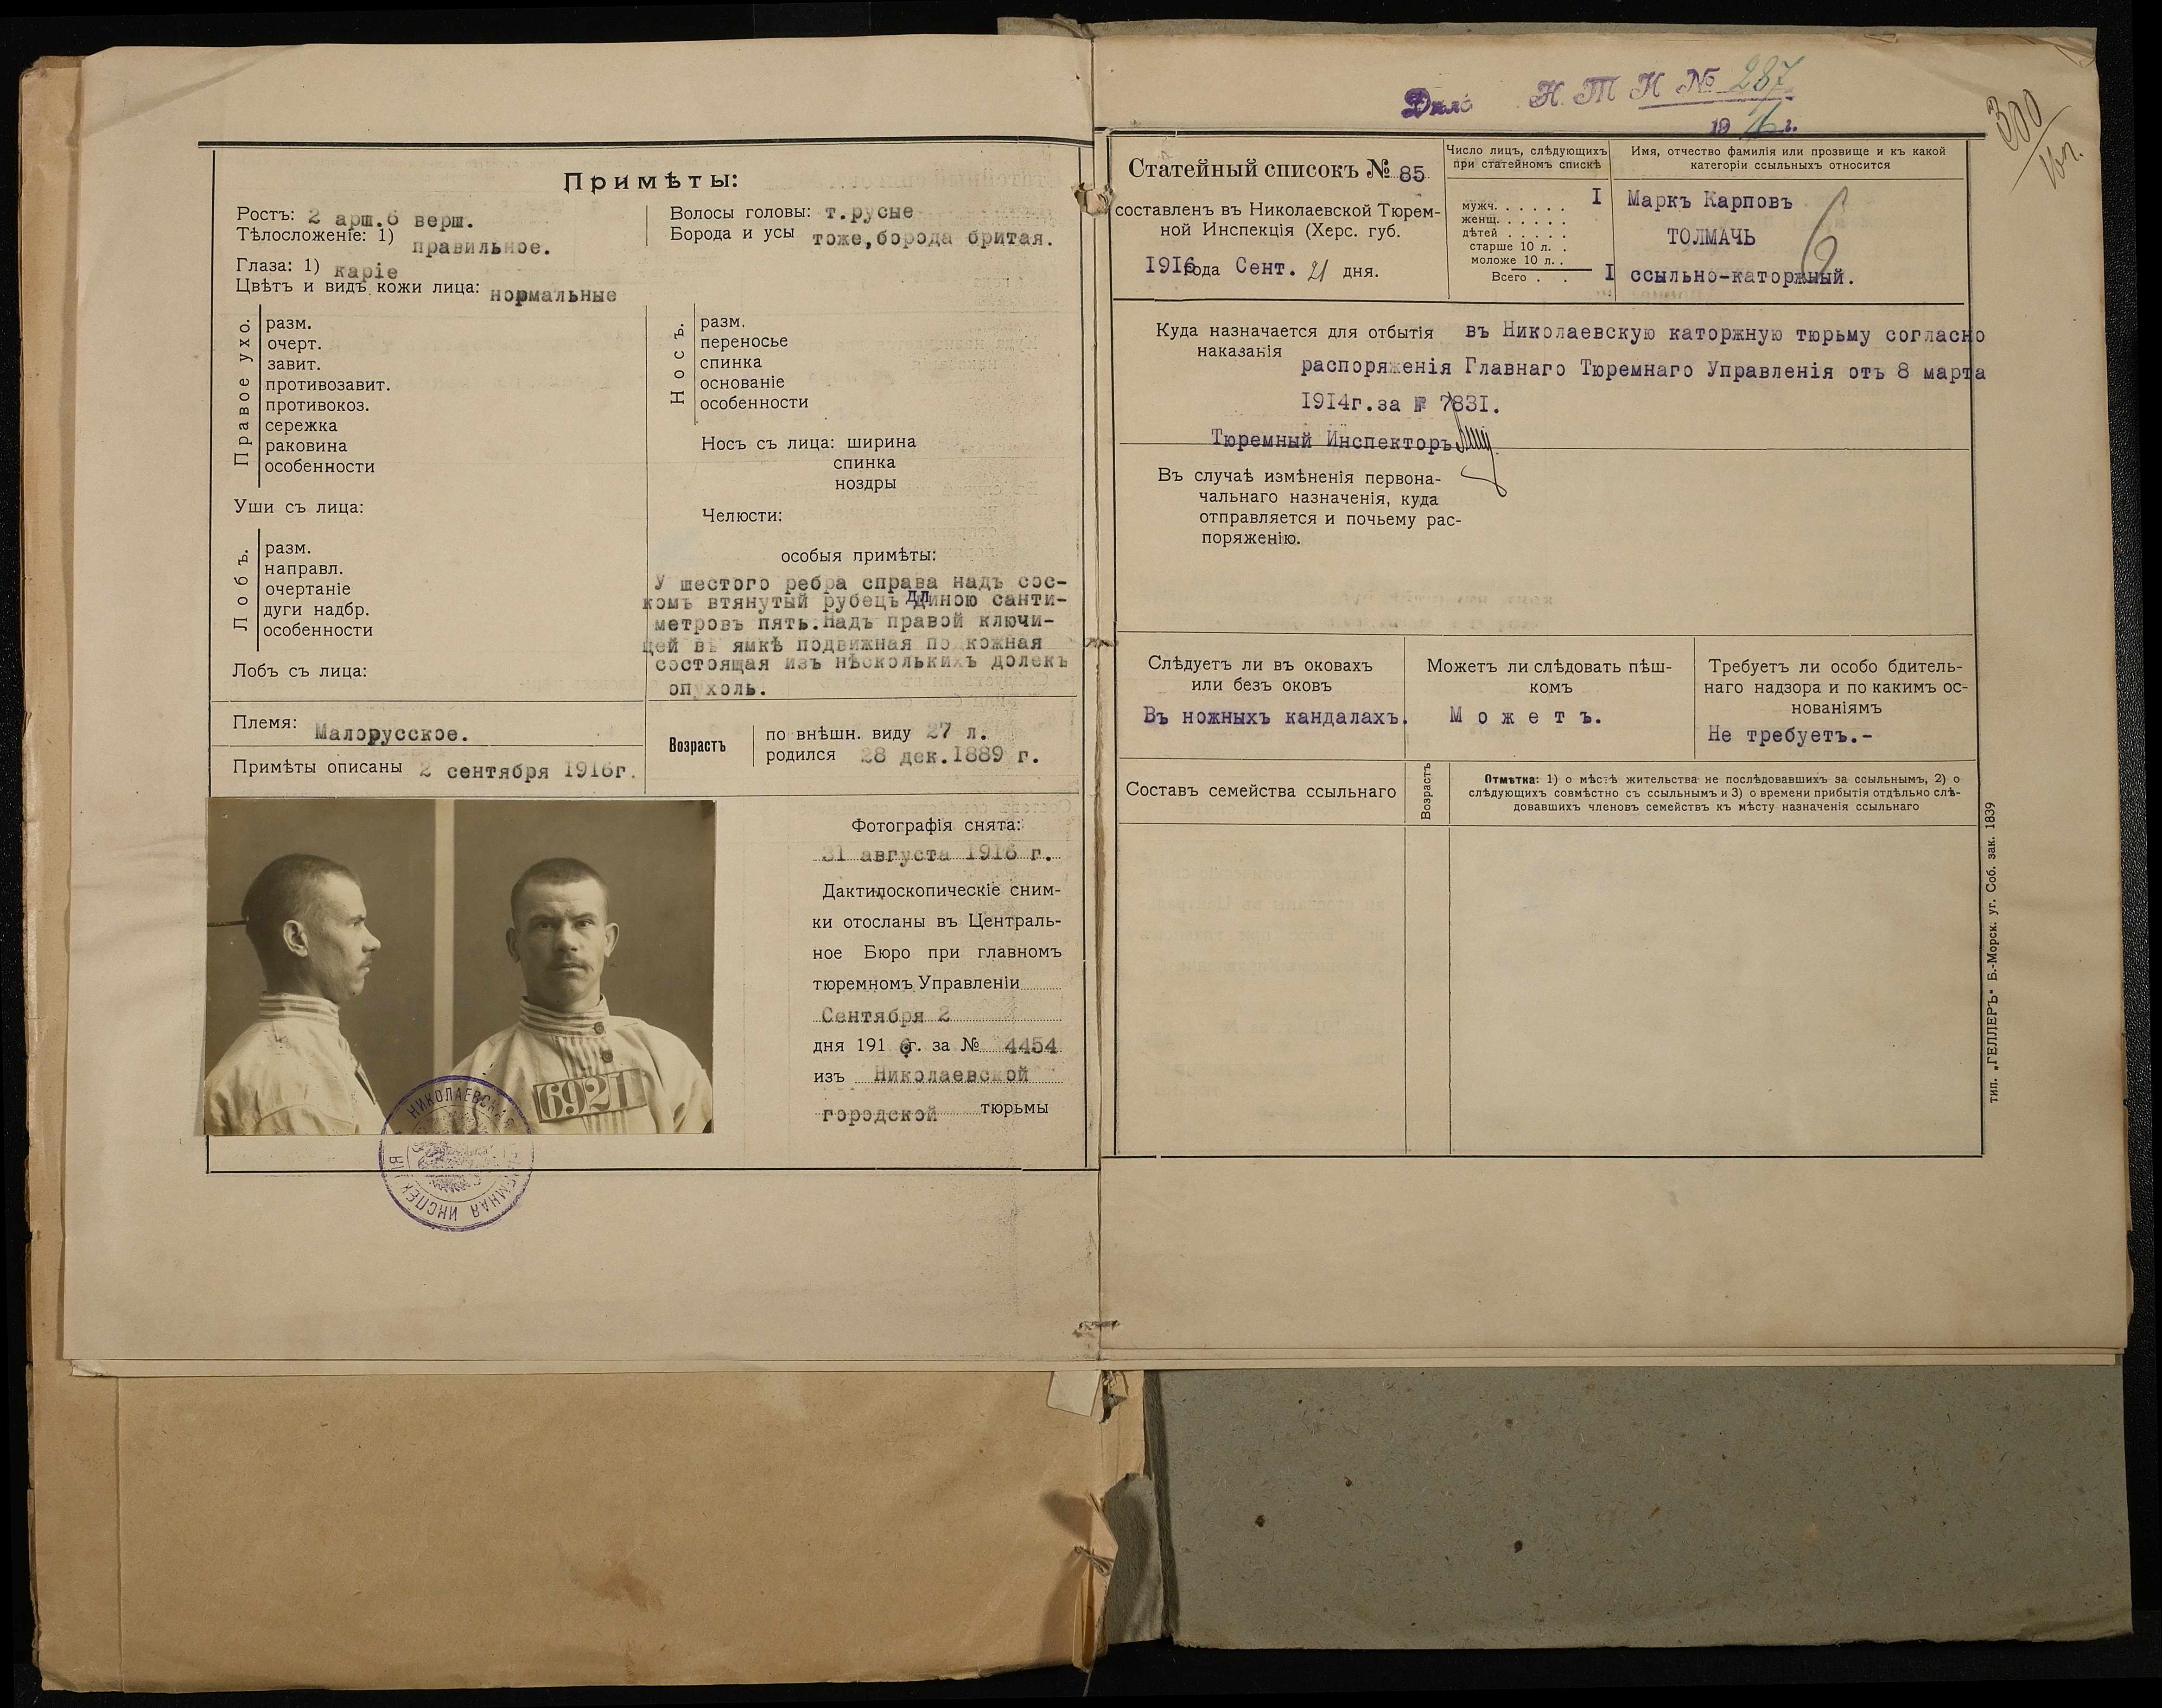 Примѣты:
Ростъ: 2 арш.6 верш.
Тѣлосложеніе: 1) правильное.
Глаза: 1) каріе
Цвѣтъ и видъ кожи лица: нормальные
Волосы головы: т.русые
Борода и усы тоже,борода бритая.
Правое ухо.
разм.
очерт.
завит.
противозавит.
противокоз.
сережка
раковина
особенности
Уши съ лица:
Лобъ.
разм.
направл.
очертаніе
дуги надбр.
особенности
Лобъ съ лица:
Носъ.
разм.
переносье
спинка
основаніе
особенности
Носъ съ лица: ширина
спинка
ноздры
Челюсти:
особыя примѣты:
У шестого ребра справа надъ сос-
комъ втянутый рубецъ длиною санти-
метровъ пять.Надъ правой ключи-
цей въ ямкѣ подвижная подкожная
состоящая изъ нѣсколькихъ долекъ
опухоль.
Племя: Малорусское.
Примѣты описаны 2 сентября 1916г.
Возрастъ
по внѣшн. виду 27 л.
родился 28 дек.1889 г.
Фотографія снята:
31 августа 1916 г.
Дактилоскопическіе сним-
ки отосланы въ Централь-
ное Бюро при главномъ
тюремномъ Управленіи
Сентября 2
дня 1916г. за № 4454
изъ Николаевской
городской тюрьмы
6921
НИКОЛАЕВСКАЯ ТЮРЕМНАЯ ИНСПЕКЦІЯ
Дѣло Н. Т И № 287
1916 г.
300
Статейный списокъ № 85
составленъ въ Николаевской Тюрем-
ной Инспекція (Херс. губ.
1916года Сент. 21 дня.
Число лицъ, слѣдующихъ
при статейномъ спискѣ
мужч. . . . . . I
женщ. . . . . .
дѣтей . . . . .
старше 10 л. . .
моложе 10 л. . .
Всего . . I
Имя, отчество фамилія или прозвище и къ какой
категоріи ссыльныхъ относится
Маркъ Карповъ
ТОЛМАЧЬ
ссыльно-каторжный.
Куда назначается для отбытія
наказанія
въ Николаевскую каторжную тюрьму согласно
распоряженія Главнаго Тюремнаго Управленія отъ 8 марта
1914г.за № 7831.
Тюремный Инспекторъ
Въ случаѣ измѣненія первона-
чальнаго назначенія, куда
отправляется и почьему рас-
поряженію.
Слѣдуетъ ли въ оковахъ
или безъ оковъ
Въ ножныхъ кандалахъ.
Можетъ ли слѣдовать пѣш-
комъ
Можетъ.
Требуетъ ли особо бдитель-
наго надзора и по какимъ ос-
нованіямъ
Не требуетъ.-
Составъ семейства ссыльнаго
Возрастъ
Отмѣтка: 1) о мѣстѣ жительства не послѣдовавшихъ за ссыльнымъ, 2) о
слѣдующихъ совмѣстно съ ссыльнымъ и 3) о времени прибытія отдѣльно слѣ-
довавшихъ членовъ семействъ къ мѣсту назначенія ссыльнаго
тип. „ГЕЛЛЕРЪ" Б.-Морск. уг. Соб. зак. 1839